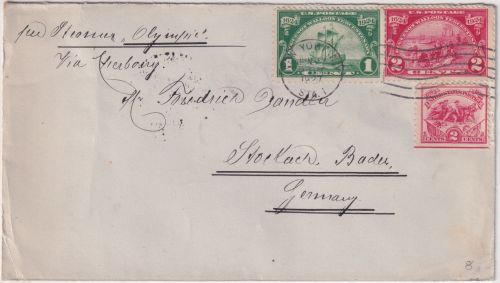 per Steamer „Olympic“
Via Cherbourg.
Hr. Friedrich
Stockach, Baden
Germany.
U.S. POSTAGE
1624 1924
HUGUENOT-WALLOON TERCENTENARY
1 CENT 1
U.S. POSTAGE
1624 1924
HUGUENOT-WALLOON TERCENTENARY
2 CENTS 2
CENTS 2 CENTS
STA.
8